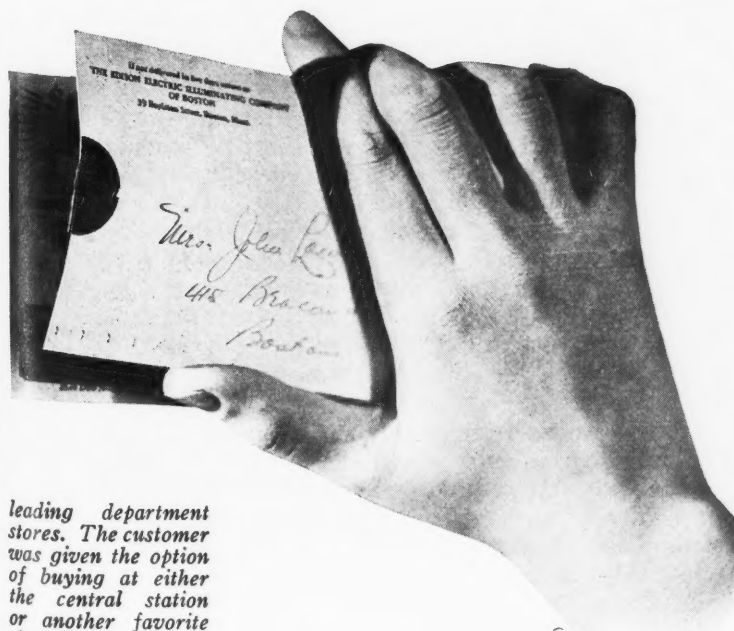 If not delivered in five days return to
THE EDISON ELECTRIC ILLUMINATING COMPANY
OF BOSTON
39 Boylston Street, Boston, Mass.
Mrs. John
418 Beacon
Boston
leading department
stores. The customer
was given the option
of buying at either
the central station
or another favorite